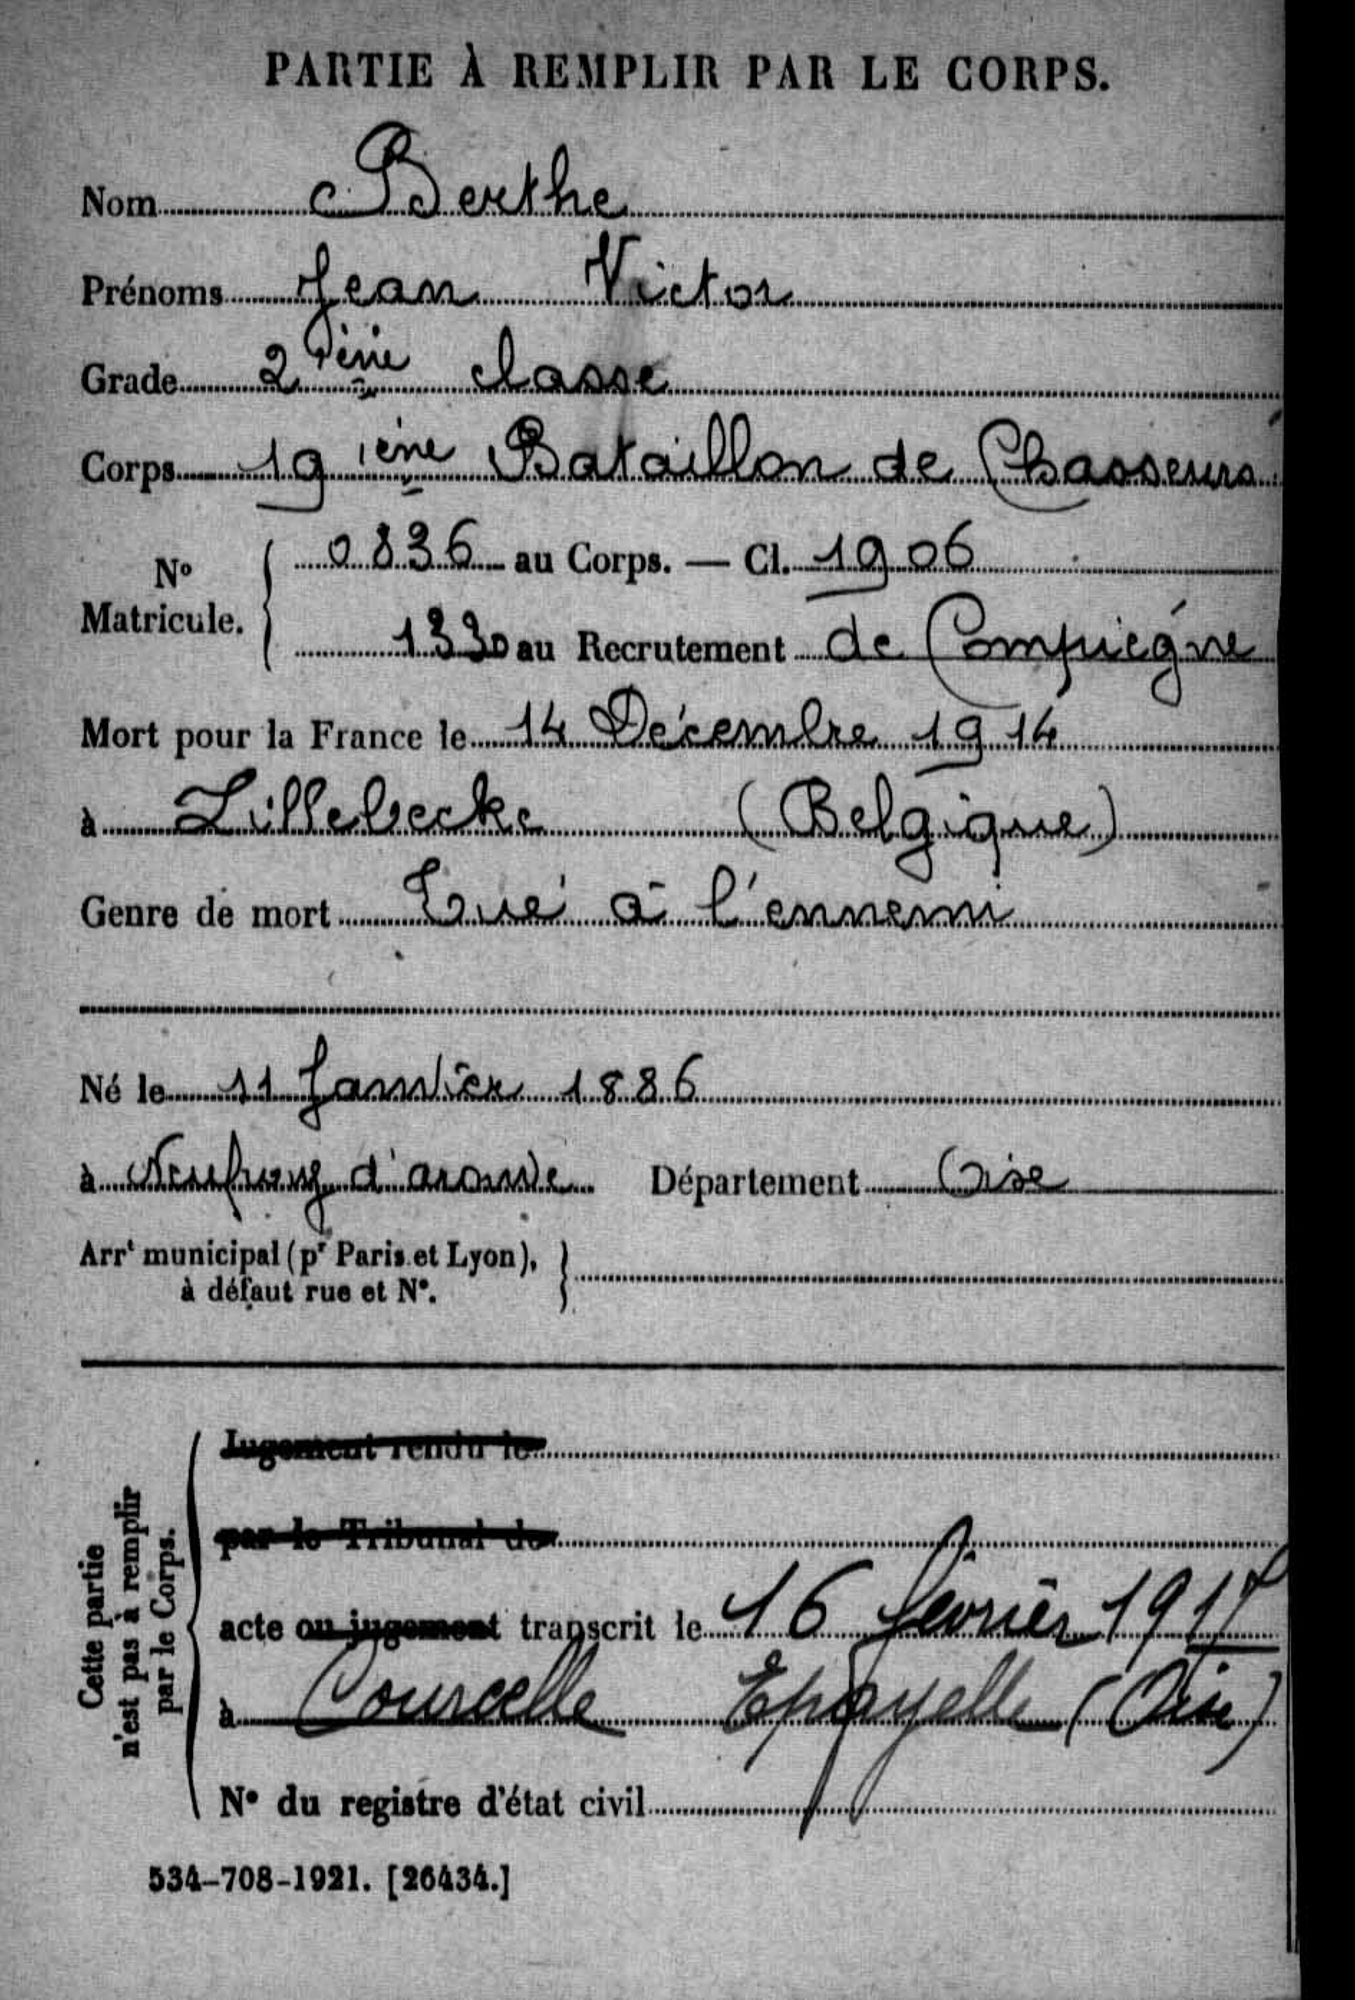 PARTIE À REMPLIR PAR LE CORPS.
Nom Berthe
Prénoms Jean Victor
Grade 2ième classe
Corps 19ième Bataillon de Chasseurs
No Matricule. 0836 au Corps. — Cl. 1906
1330 au Recrutement de Compiégne
Mort pour la France le 14 Décembre 1914
à Zillebecke (Belgique)
Genre de mort Tué à l'ennemi
Né le 11 Janvier 1886
à d'aronde Département Oise
Arrt municipal (pr Paris et Lyon),
à défaut rue et N°.
Cette partie
n'est pas à remplir
par le Corps.
Jugement rendu le
par le Tribunal de
acte ou jugement transcrit le 16 février 1917
à Courcelle Epayelle (Oise)
N° du registre d'état civil
534-708-1921. [26434.]